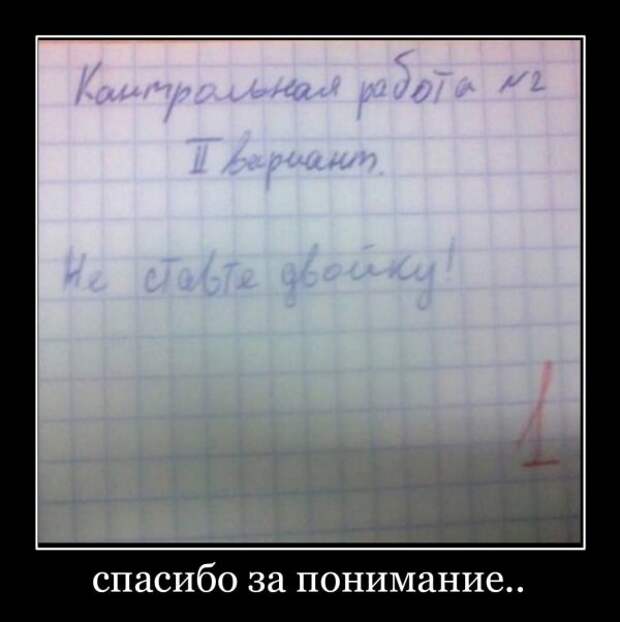 Контрольная работа №2
II вариант.
Не ставте двойку!
1
спасибо за понимание..